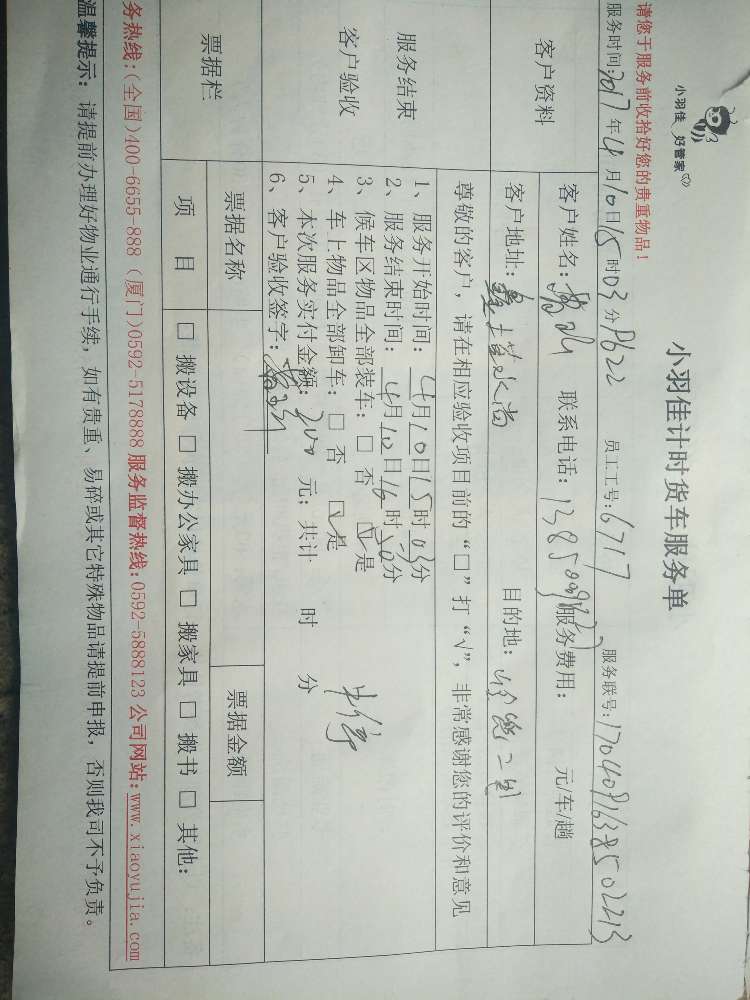 小羽佳 好管家
小羽佳计时货车服务单
请您于服务前收拾好您的贵重物品!
服务时间:2017年4月10日15时03分 P622 员工工号:6717 服务联号:
客户资料
客户姓名: 联系电话: 服务费用: 元/车/趟
客户地址: 目的地:
尊敬的客户,请在相应验收项目前的“□”打“√”,非常感谢您的评价和意见
服务结束
客户验收
1、服务开始时间:4月10日15时03分
2、服务结束时间:4月10日16时30分
3、候车区物品全部装车:□ 否 ☑是
4、车上物品全部卸车:□ 否 ☑是
5、本次服务实付金额:200 元;共计 时 分
6、客户验收签字:
票据栏
票据名称 票据金额
项 目 □ 搬设备 □ 搬办公家具 □ 搬家具 □ 搬书 □ 其他:
务热线:(全国)400-6655-888 (厦门)0592-5178888 服务监督热线:0592-5888123 公司网站:www.xiaoyujia.com
温馨提示: 请提前办理好物业通行手续,如有贵重、易碎或其它特殊物品请提前申报,否则我司不予负责。